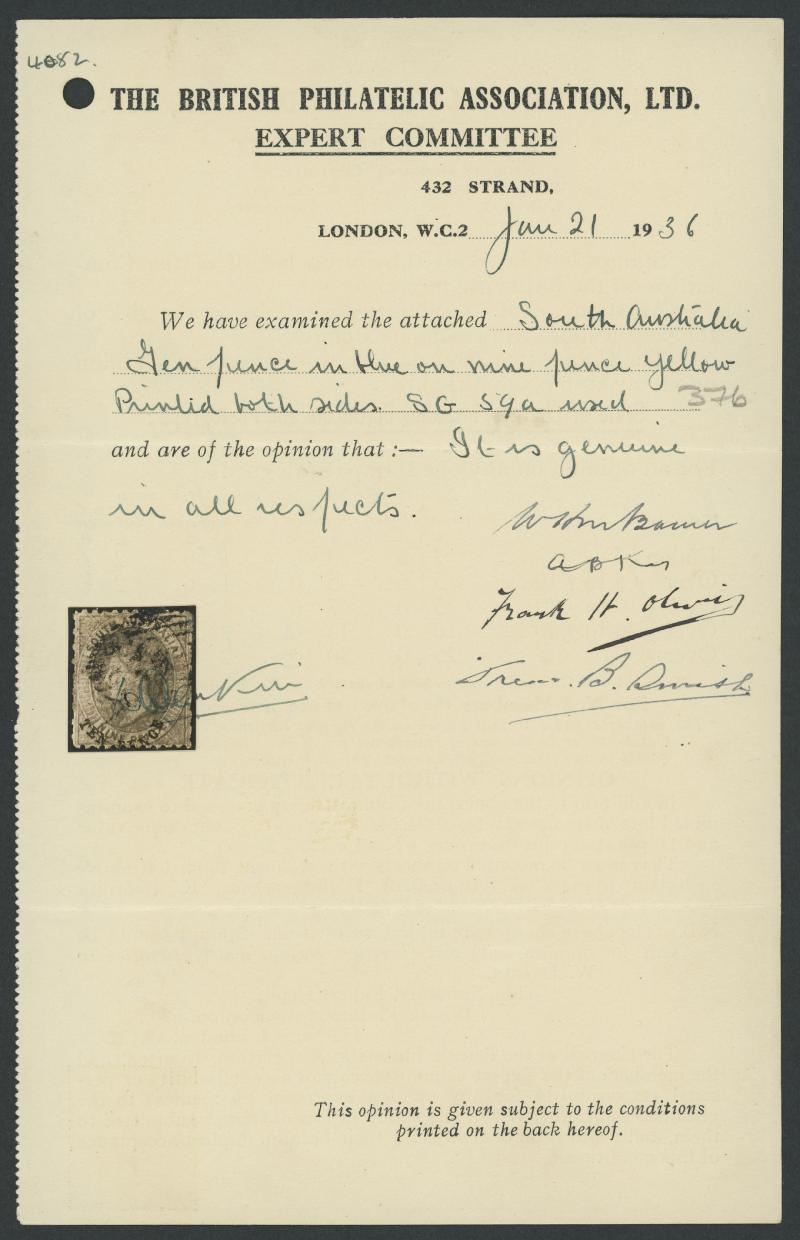 4082.
THE BRITISH PHILATELIC ASSOCIATION, LTD.
EXPERT COMMITTEE
432 STRAND,
LONDON, W.C.2 Jan 21 1936
We have examined the attached South Australia
Ten pence in blue on nine pence yellow
Printed both sides. SG 59a used 37b
and are of the opinion that :— It is genuine
in all respects.
Frank H.
B.
SOUTH AUSTRALIA
TEN PENCE
NINE PENCE
This opinion is given subject to the conditions
printed on the back hereof.